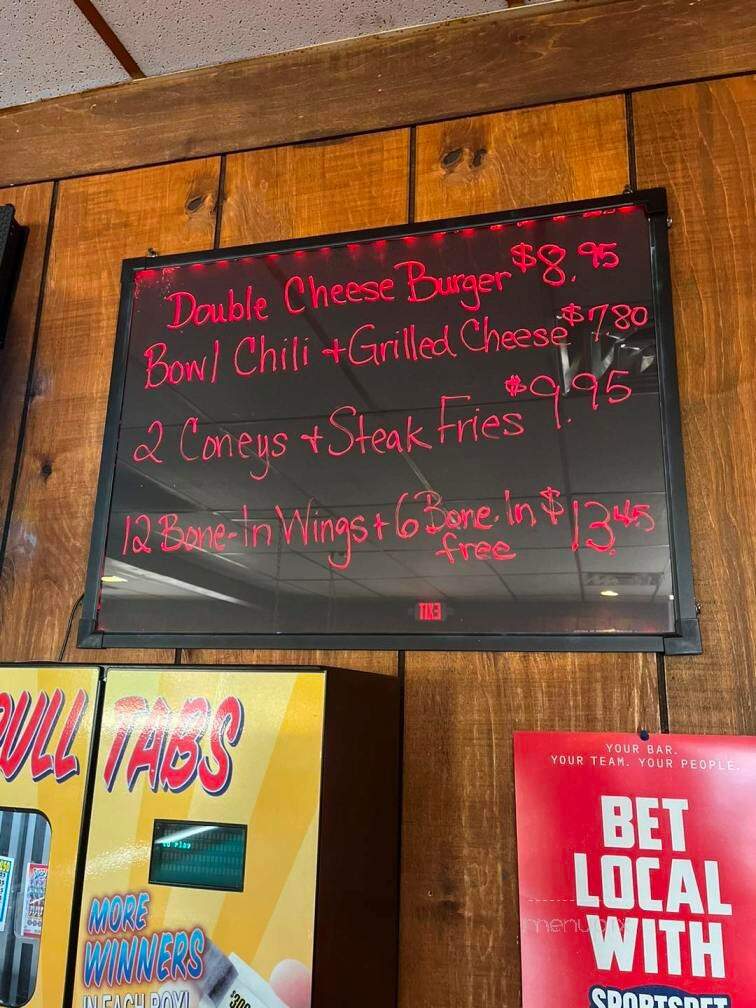 Double Cheese Burger $8.95
Bowl Chili + Grilled Cheese $7.80
2 Coneys + Steak Fries $9.95
12 Bone-In Wings + 6 Bone-In $13.45
free
EXIT
PULL TABS
MORE
WINNERS
IN EACH BOX!
YOUR BAR.
YOUR TEAM. YOUR PEOPLE.
BET
LOCAL
WITH
SPORTSBET